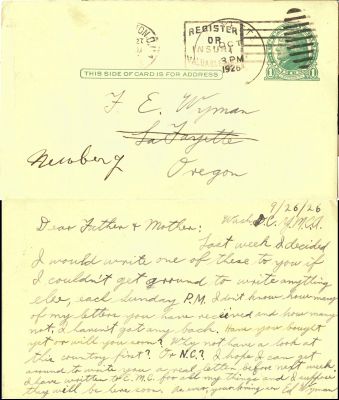 REGISTER
OR
INSURE
3 PM
1926
THIS SIDE OF CARD IS FOR ADDRESS
F. E. Wyman
La Fayette
Newberg
Oregon
9/26/26
Wash. D.C. Y.M.C.A.
Dear Father & Mother:
Last week I decided
I would write one of these to you if
I couldn't get around to write anything
else, each Sunday P.M. I don't know how many
of my letters you have received and how many
not, I haven't got any back. Have you bought
yet or will you soon? Why not have a look at
this country first? Or N.C.? I hope I can get
around to write you a real letter before next week
I have written to E.M.C. for all my things and I suppose
they will be here soon. As ever, your loving son Ed. Wyman